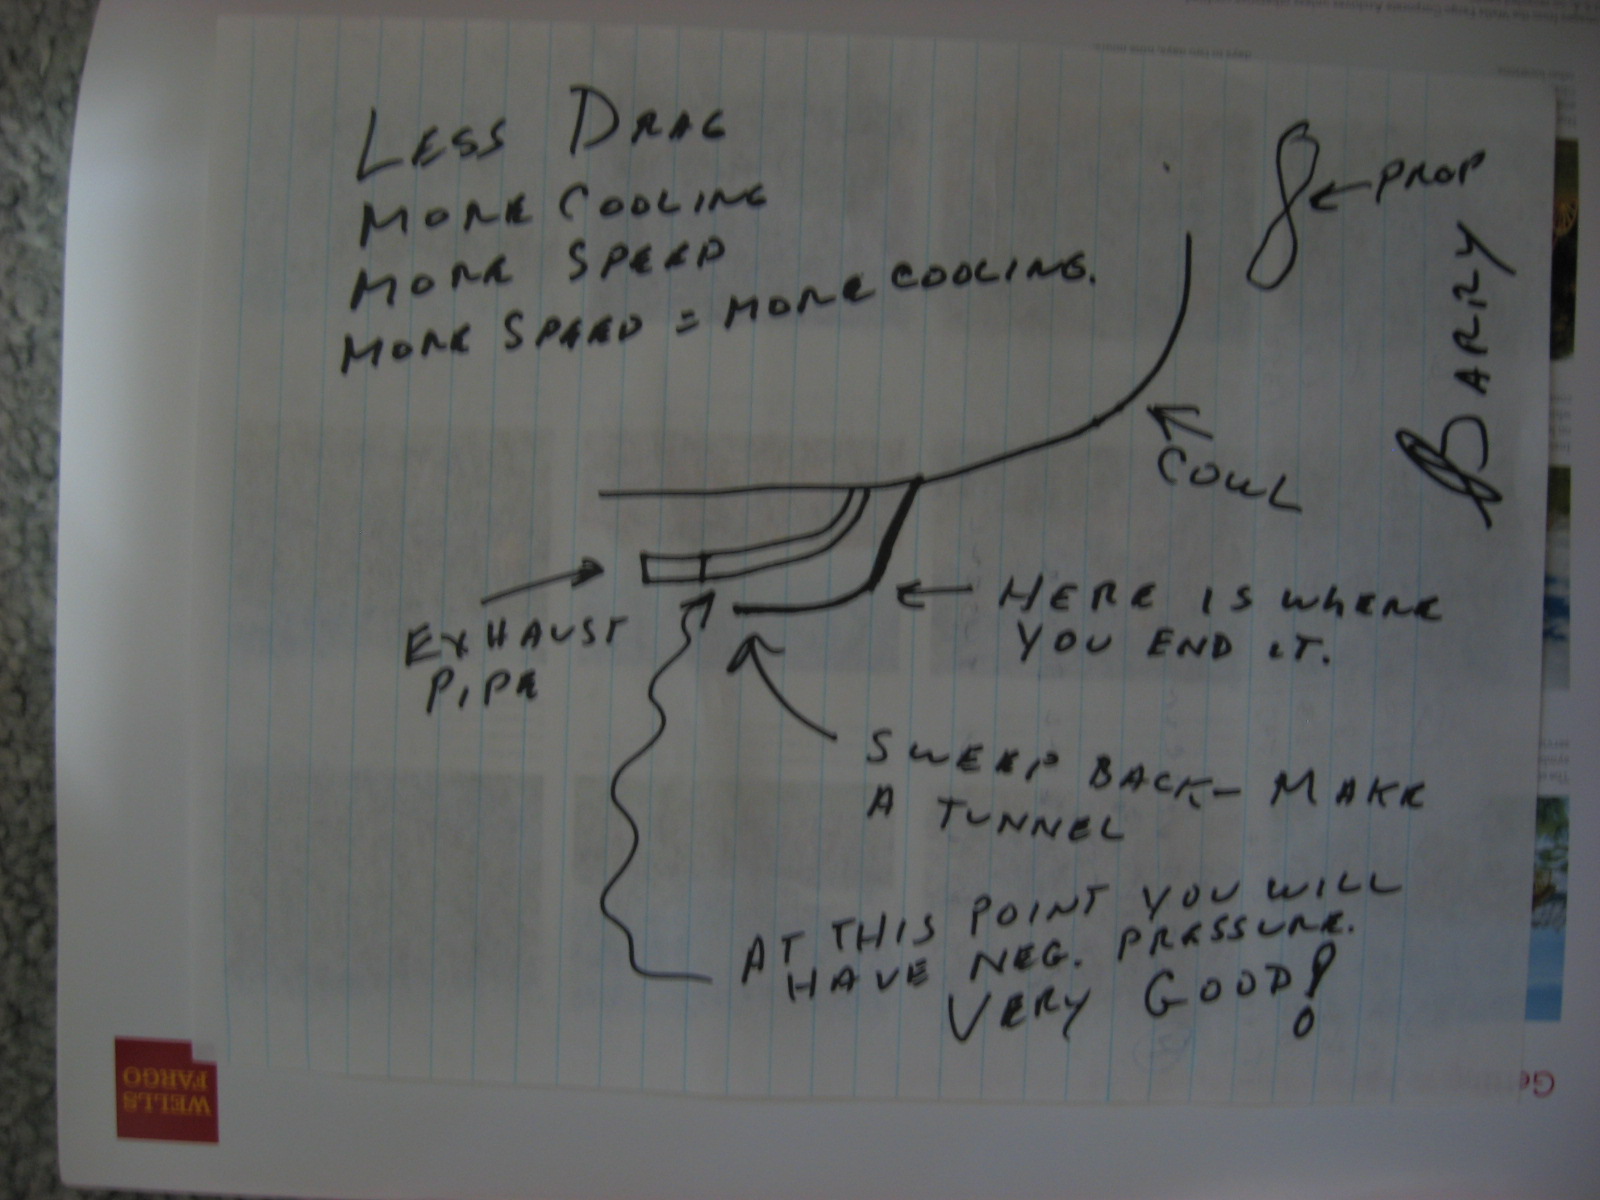 LESS DRAG
MORE COOLING
MORE SPEED
MORE SPEED = MORE COOLING.
PROP
BARRY
COWL
EXHAUST
PIPE
HERE IS WHERE
YOU END IT.
SWEEP BACK- MAKE
A TUNNEL
AT THIS POINT YOU WILL
HAVE NEG. PRESSURE.
VERY GOOD!
WELLS
FARGO